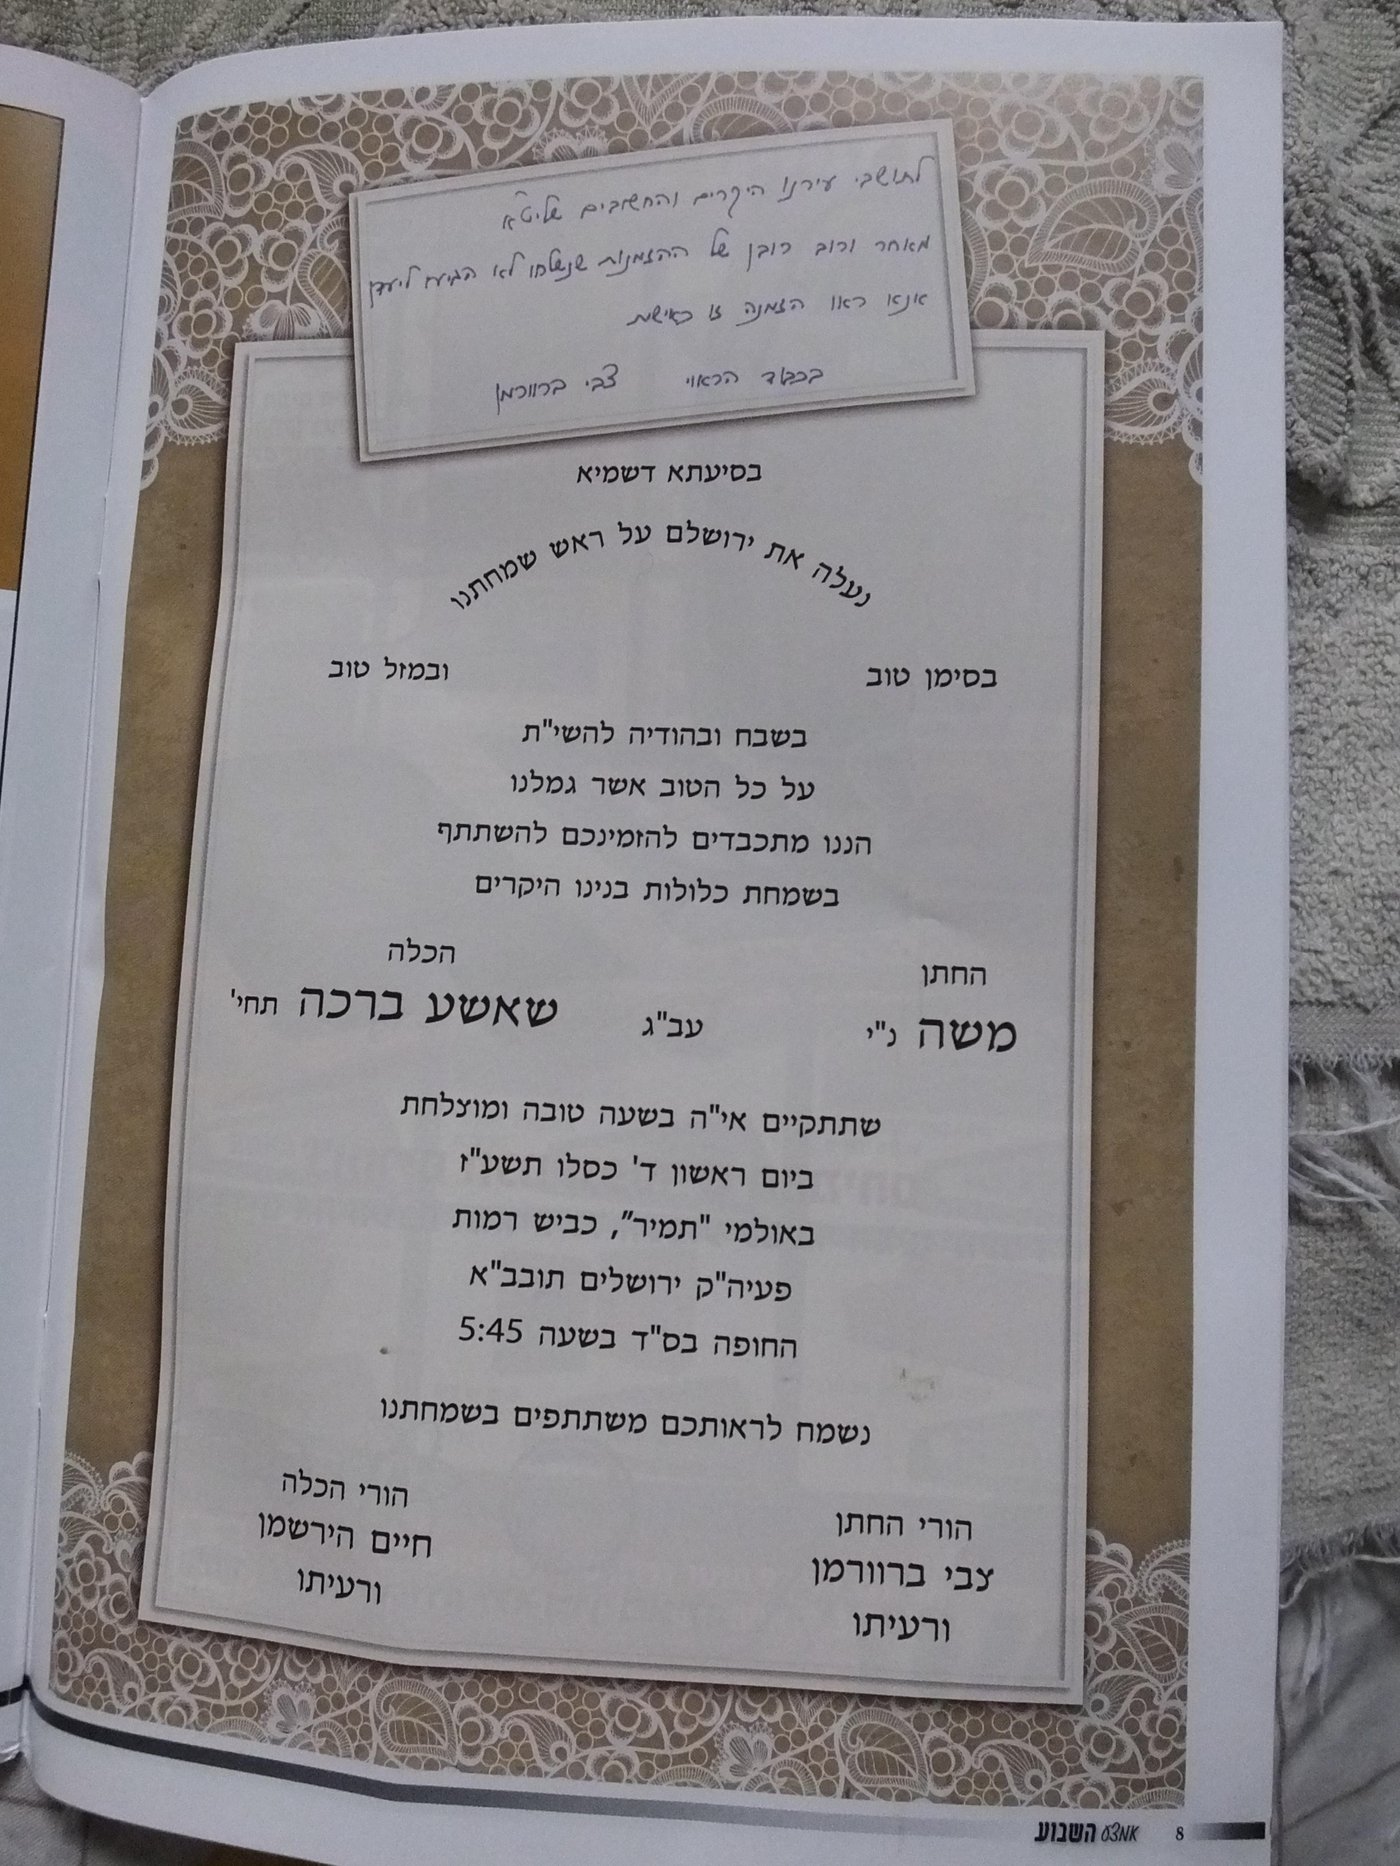 לתושבי עירנו היקרים והחשובים שליט"א
מאחר ורוב רובן של ההזמנות שנשלחו לא הגיעו ליעדן
אנא ראו הזמנה זו כאישית
בכבוד הראוי צבי ברוורמן
בסיעתא דשמיא
נעלה את ירושלם על ראש שמחתנו
בסימן טוב ובמזל טוב
בשבח ובהודיה להשי"ת
על כל הטוב אשר גמלנו
הננו מתכבדים להזמינכם להשתתף
בשמחת כלולות בנינו היקרים
החתן הכלה
משה נ"י עב"ג שאשע ברכה תחי'
שתתקיים אי"ה בשעה טובה ומוצלחת
ביום ראשון ד' כסלו תשע"ז
באולמי "תמיר", כביש רמות
פעיה"ק ירושלים תובב"א
החופה בס"ד בשעה 5:45
נשמח לראותכם משתתפים בשמחתנו
הורי החתן הורי הכלה
צבי ברוורמן חיים הירשמן
ורעיתו ורעיתו
8 אמצע השבוע